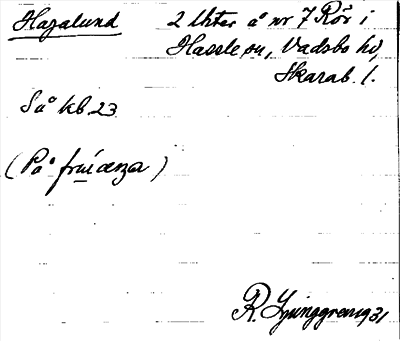 Hagalund 2 lhtar å nr 7 Rör i
Hassle sn, Vadsbo hd,
Skarab. l.
Så kb 23
(På
R. Ljunggren 1931